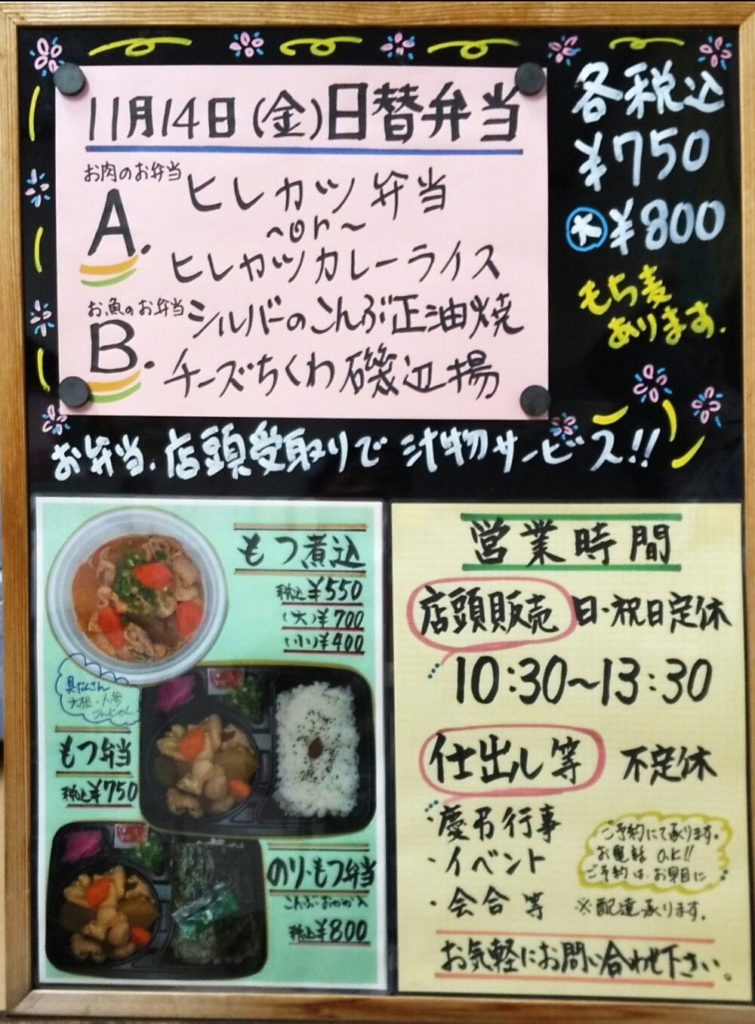 11月14日(金)日替弁当
お肉のお弁当
A. ヒレカツ弁当
~or~
ヒレカツカレーライス
お魚のお弁当
B. シルバーのこんぶ正油焼
チーズちくわ磯辺揚
各税込
¥750
大 ¥800
もち麦
あります.
お弁当、店頭受取りで 汁物サービス!!
もつ煮込
税込¥550
(大)¥700
(小)¥400
具だくさん
大根・人参
こんにゃく
もつ弁当
税込¥750
のり・もつ弁当
こんぶ・おかか入
税込¥800
営業時間
店頭販売 日・祝日定休
10:30~13:30
仕出し等 不定休
・慶弔行事
・イベント
・会合等
ご予約にて承ります。
お電話 O.K!!
ご予約は、お早目に
※配達承ります。
お気軽にお問い合わせ下さい。